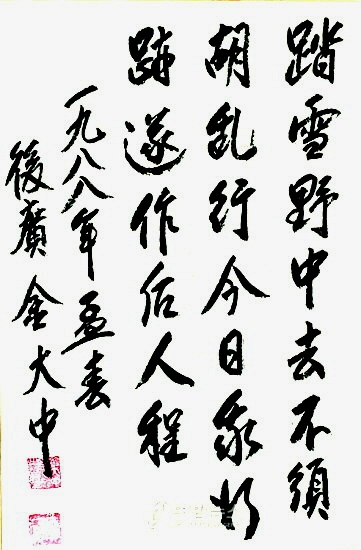 踏雪野中去不須
胡乱行今日我行
跡遂作后人程
一九八八年孟春
後廣 金大中